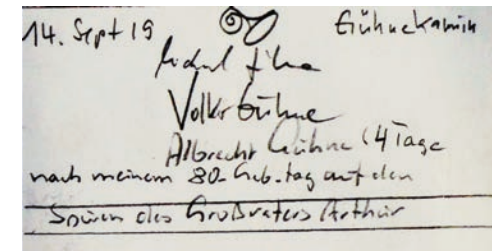 14. Sept 19 Gühnekamin
Volker Gühne
Albrecht Gühne (4 Tage
nach meinem 80. Geb.tag auf den
Spuren des Großvaters Arthur